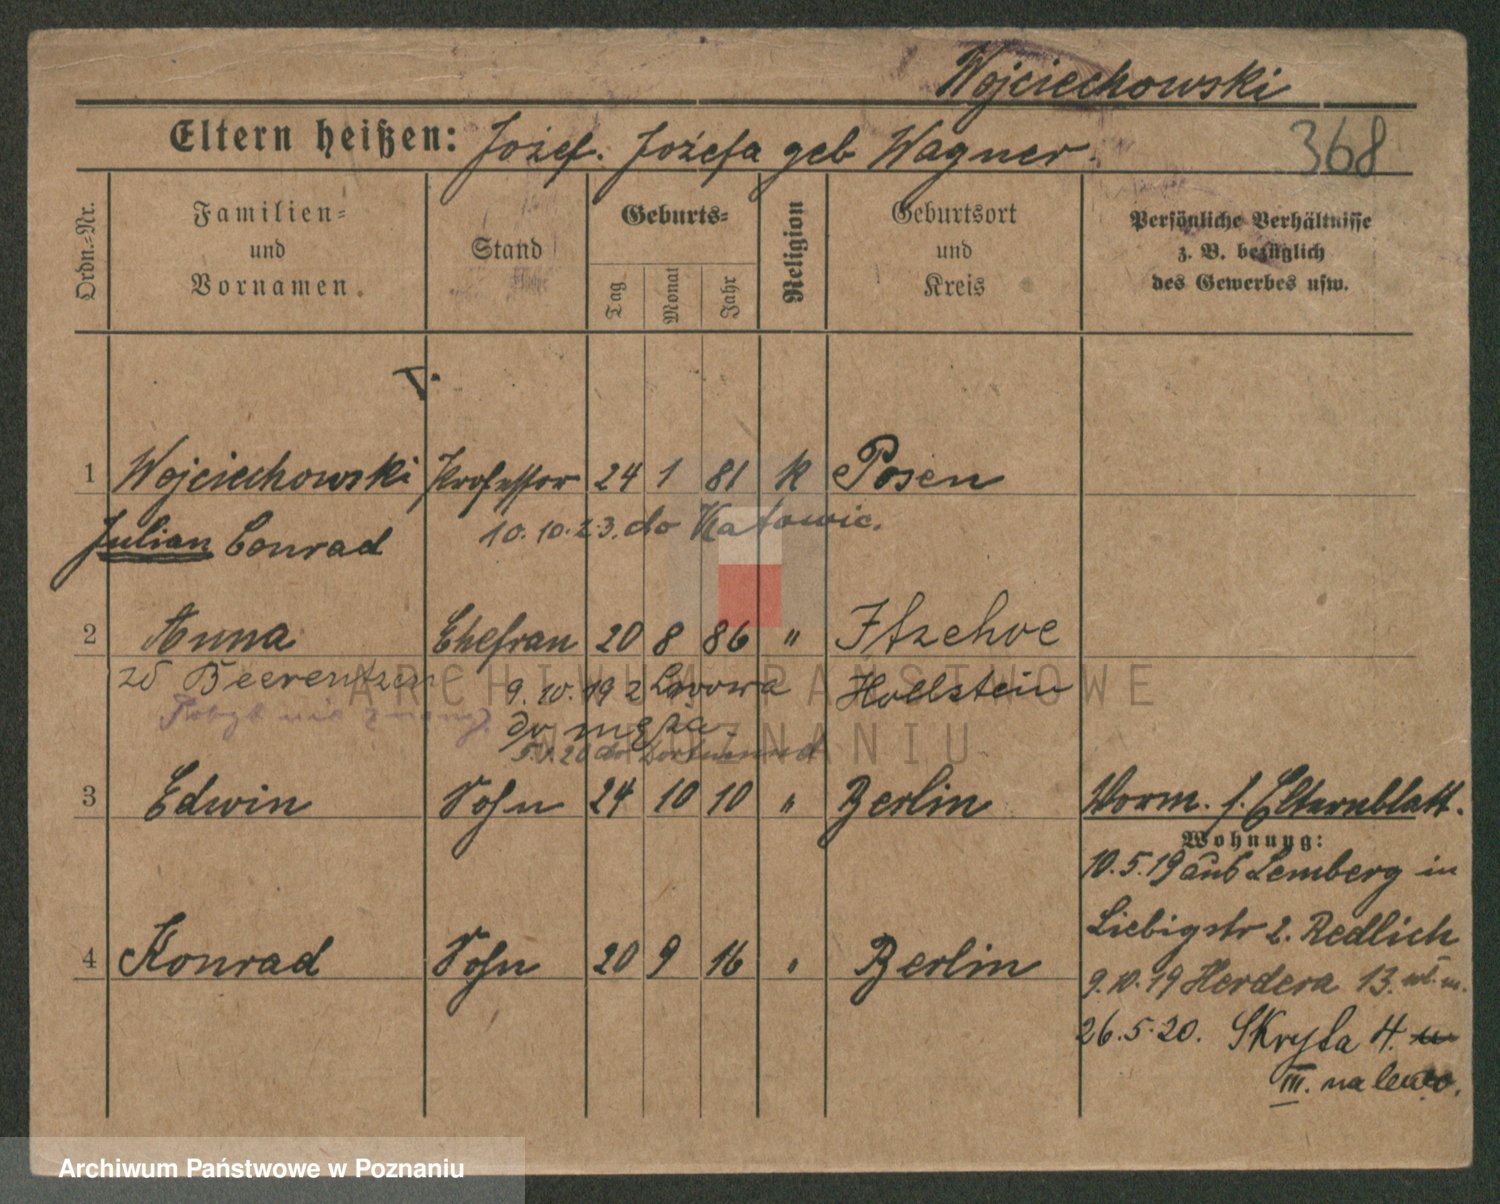 Wojciechowski
Eltern heißen: Józef. Józefa geb Wagner.
368
Ordn.-Nr.
Familien-
und
Vornamen.
Stand
Geburts-
Tag
Monat
Jahr
Religion
Geburtsort
und
Kreis
Persönliche Verhältnisse
z. B. bezüglich
des Gewerbes usw.
1 Wojciechowski Professor 24 1 81 K Posen
Julian Conrad
10.10.23. do Katowic.
2 Anna Ehefrau 20 8 86 " Itzehoe
zd Beerentzen 9.10.19 z Lwowa Hollstein
do męża.
do Dortmund
3 Edwin Sohn 24 10 10 " Berlin
Vorm. f. Elternblatt.
Wohnung:
10.5.19 aus Lemberg in
Liebigstr 2. Redlich
4 Konrad Sohn 20 9 16 " Berlin
9.10.19 Herdera 13.
26.5.20. Skryta 4.
III. na lewo.
ARCHIWUM PAŃSTWOWE
W POZNANIU
Archiwum Państwowe w Poznaniu